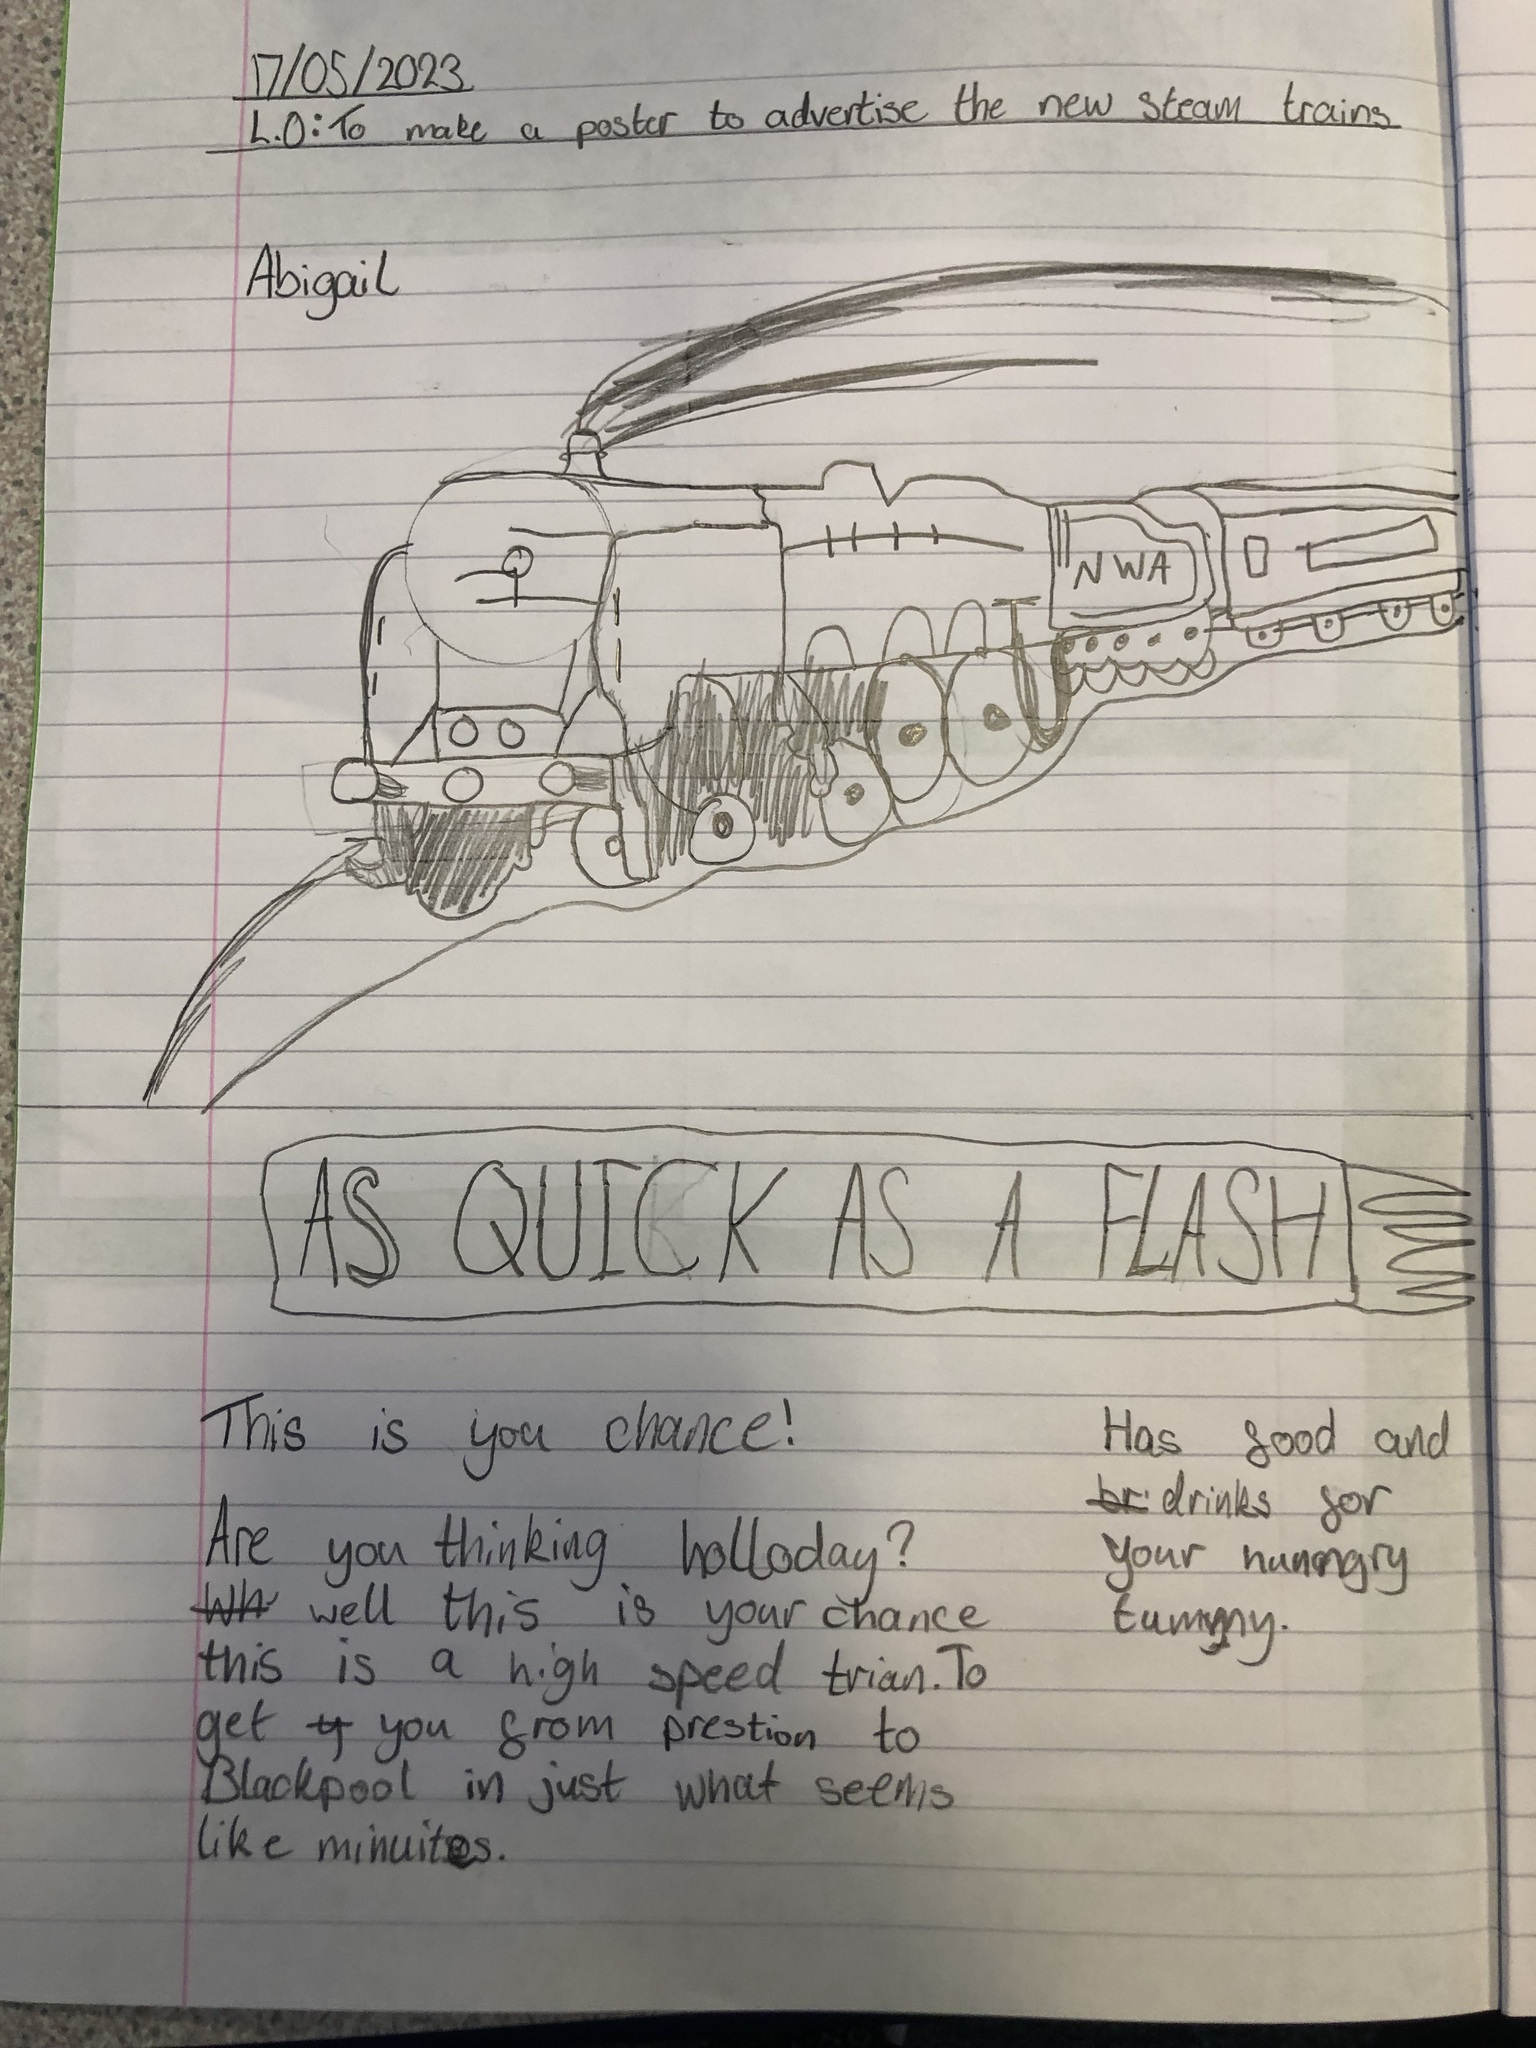 17/05/2023
L.O: To make a poster to advertise the new steam trains
Abigail
NWA
AS QUICK AS A FLASH
This is you chance!
Are you thinking holloday?
well this is your chance
this is a high speed trian. To
get you from prestion to
Blackpool in just what seems
like minuites.
Has food and
drinks for
your hungry
tummy.